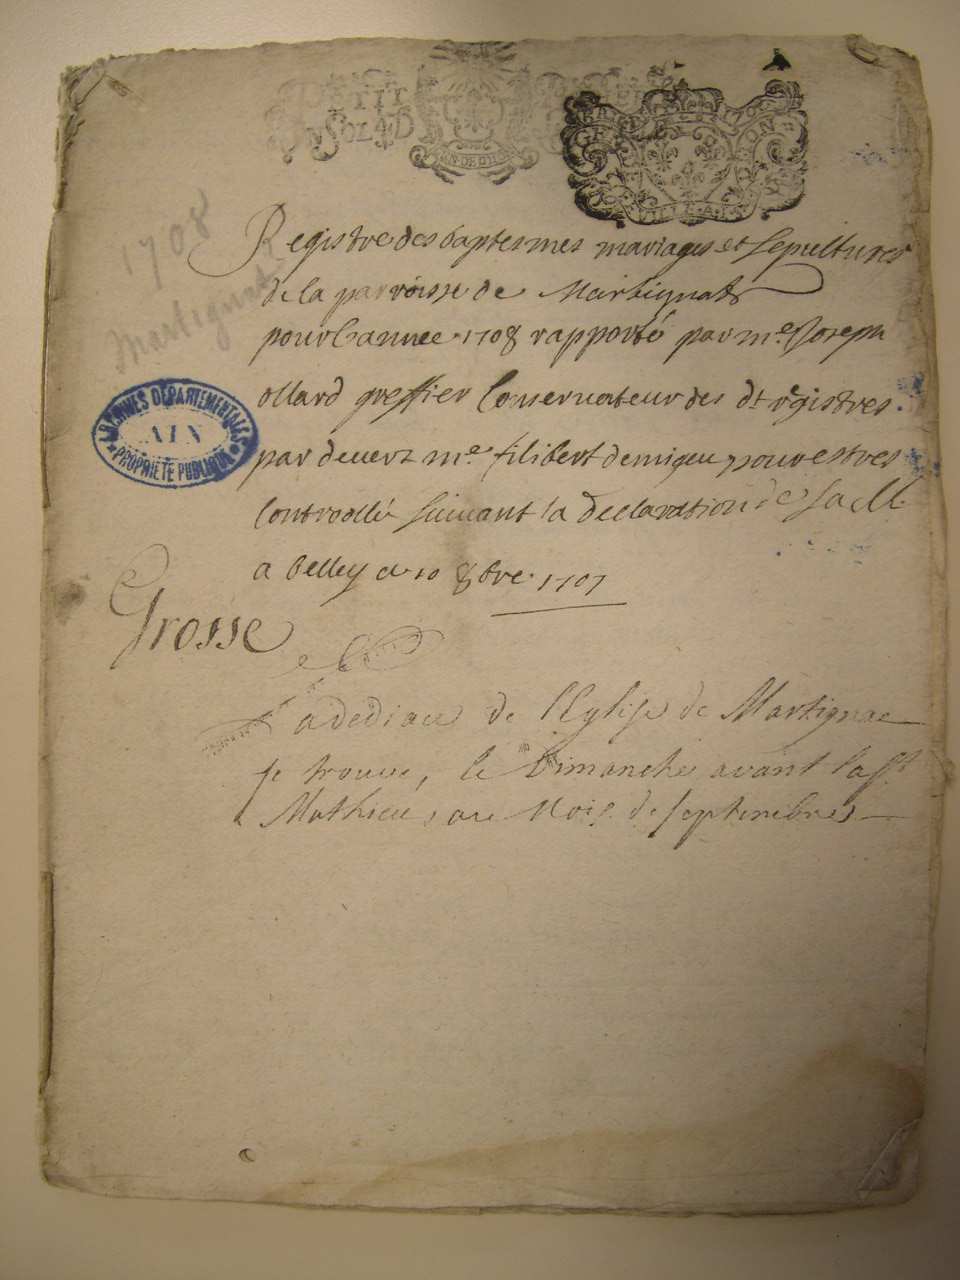 PETIT
SOLS D
1708
Martignat
Registre des baptesmes mariages et sepultures
de la parroisse de Martignat
pour l'annee 1708 rapporté par me. Joseph
ollard greffier Conservateur des dt. registres
par devert me. filibert demigeu pour estres
Controollé suivant la declaration de sa M.
a belley ce 10 8bre. 1707
ARCHIVES DÉPARTEMENTALES
AIN
PROPRIÉTÉ PUBLIQUE
Grosse
La dediace de l'Eglise de Martignac
se trouve, le Dimanche avant la st
Mathieu, au Mois de septembre